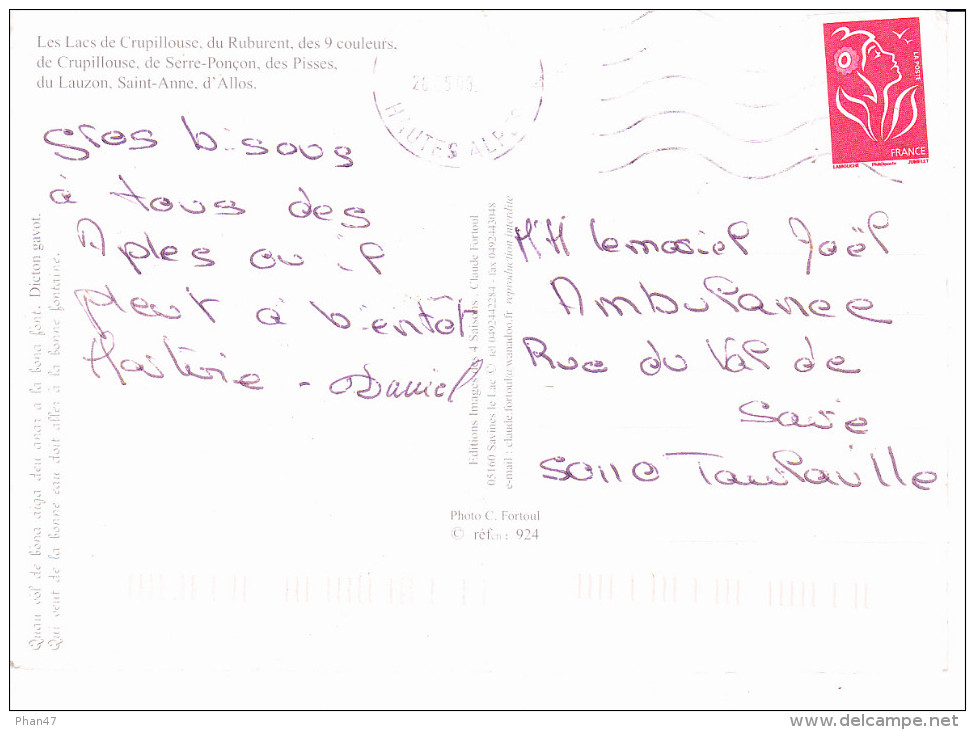 Les Lacs de Crupillouse, du Ruburent, des 9 couleurs,
de Crupillouse, de Serre-Ponçon, des Pisses,
du Lauzon, Saint-Anne, d'Allos.
Gros bisous
à tous des
Alpes ou il
pleut à bientôt
Martine - Daniel
Quau vòl de bona aiga deu anar à la bona font. Dicton gavot.
Qui veut de la bonne eau doit aller à la bonne fontaine.
Editions Images des 4 Saisons, Claude Fortoul
05160 Savines le Lac © tel 0492442284 - fax 0492443048
e-mail : claude.fortoul@wanadoo.fr reproduction interdite
Photo C. Fortoul
© réf : 924
HAUTES ALPES
LA POSTE
FRANCE
LAMOUCHE
Joël
Ambulance
Rue du Val de
Saire
50110 Tourlaville
Phan47
delcampe.net